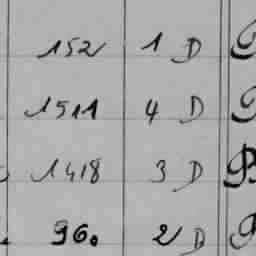 152 1 D
1511 4 D
1418 3 D
960 2 D